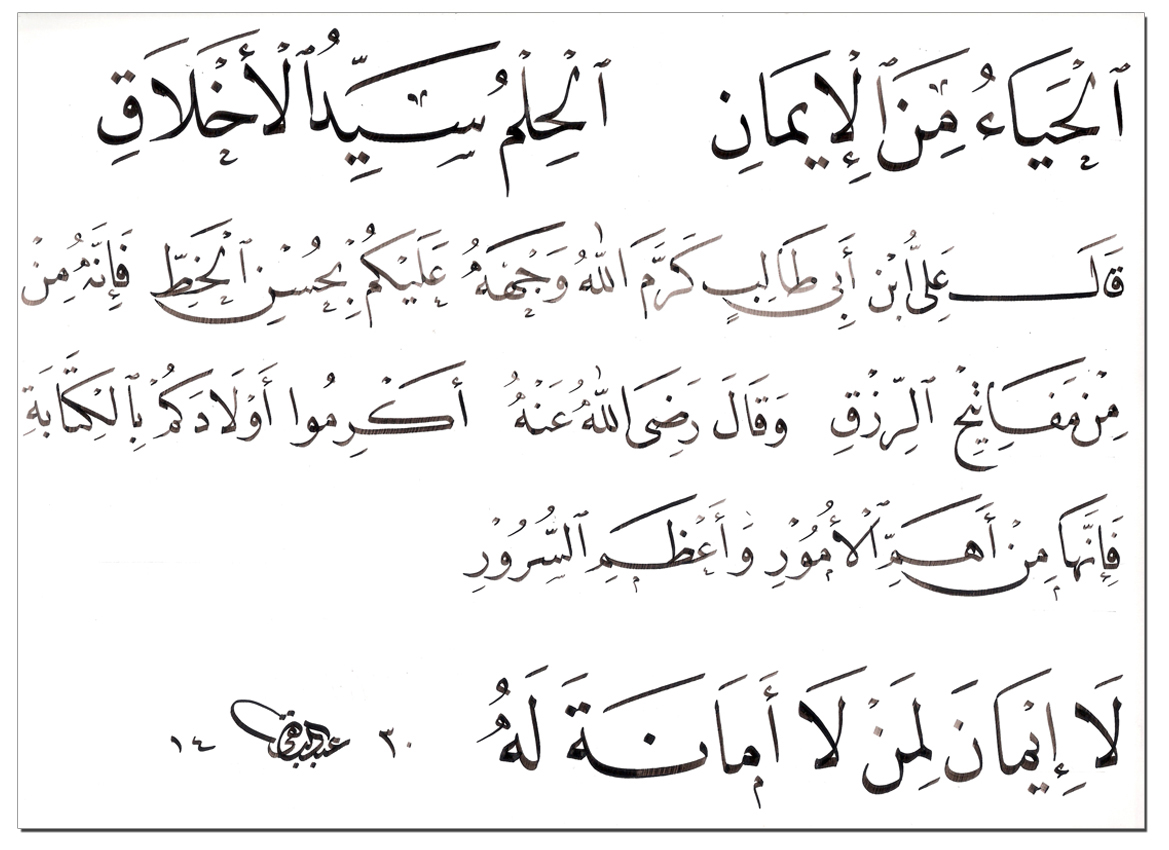 ٱلْحَيَاءُ مِنَ ٱلْإِيمَانِ ٱلْحِلْمُ سَيِّدُ ٱلْأَخْلَاقِ
قَالَ عَلِىُّ ابْنِ أَبِى طَالِبٍ كَرَّمَ اللّٰهُ وَجْهَهُ عَلَيْكُمْ بِحُسْنِ ٱلْخَطِّ فَإِنَّهُ مِنْ
مِنْ مَفَاتِيْحِ ٱلرِّزْقِ وَقَالَ رَضِىَ اللّٰهُ عَنْهُ أَكْرِمُوا أَوْلَادَكُمْ بِٱلْكِتَابَةِ
فَإِنَّهَا مِنْ أَهَمِّ ٱلْأُمُوْرِ وَأَعْظَمِ ٱلسُّرُوْرِ
لَا إِيْمَانَ لِمَنْ لَا أَمَانَةَ لَهُ ٣٠ ١٤